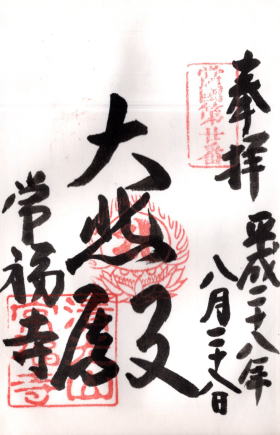 奉拝
平成二十八年
八月二十八日
大悲殿
常福寺
第廿番
常福寺